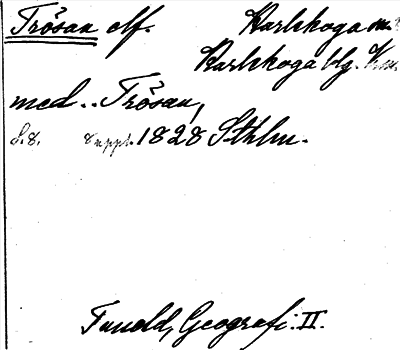 Trösan elf. Karlskoga sn.
Karlskoga blg. Vrm.
med.. Trösan,
S. 8. Suppl. 1828 Sthlm.
Tuneld, Geografi. II.